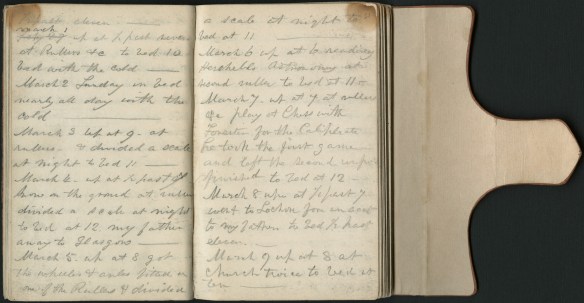 past eleven
March 1 up at ½ past seven
at Rulers &c to bed 10
bed with the cold
March 2 Sunday in bed
nearly all day with the
cold
March 3 up at 9. at
rulers. & divided a scale
at night to bed 11
March 4. up at ½ past 8
snow on the ground at
divided a scale at night
to bed at 12 my father
away to Glasgow
March 5. up at 8 got
the wheels &
of the Rulers & divided
a scale at night to
bed at 11
March 6 up at 6 reading
Herschels Astronomy at
wood ruller to bed at 11
March 7. up at 7 at rullers
&c play at Chess with
Forester for the
he took the first game
and left the second
finished to bed at 12
March 8 up at ½ past 7
went to
to my father to bed ½ past
eleven
March 9 up at 8 at
Church twice to bed at
ten